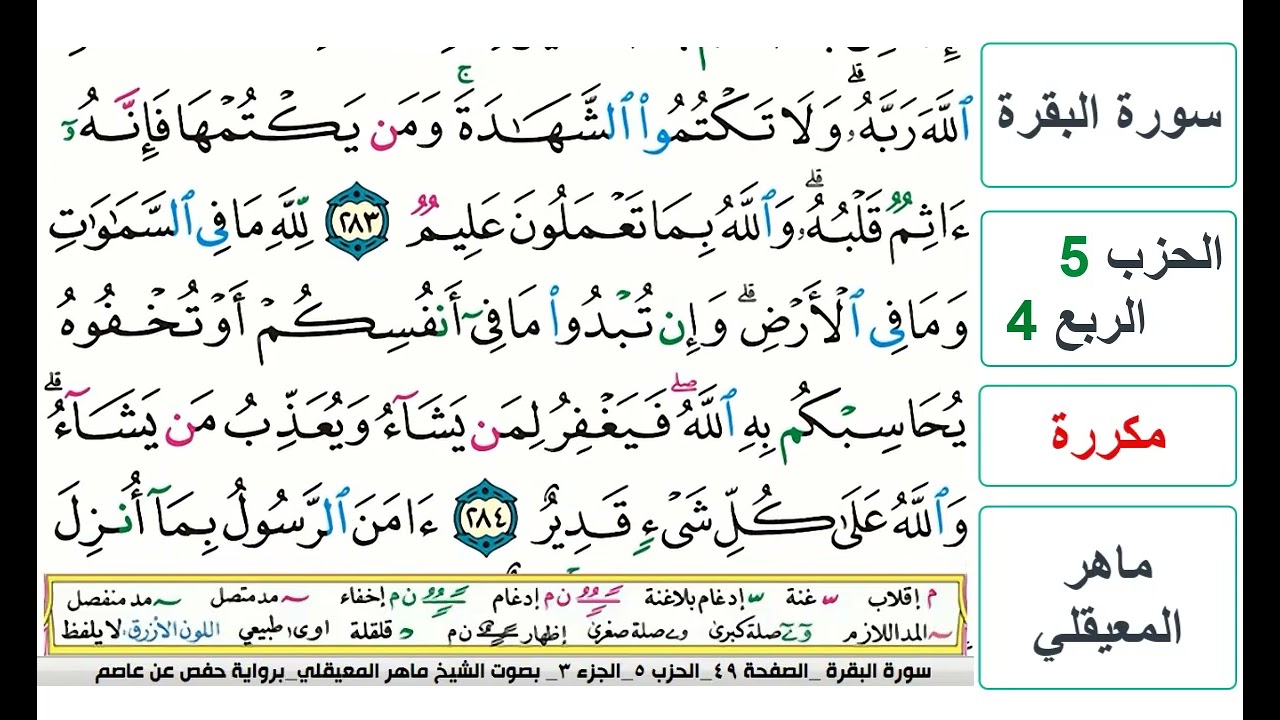 ٱللَّهَ رَبَّهُۥۗ وَلَا تَكْتُمُوا۟ ٱلشَّهَـٰدَةَۚ وَمَن يَكْتُمْهَا فَإِنَّهُۥٓ
ءَاثِمٌ قَلْبُهُۥۗ وَٱللَّهُ بِمَا تَعْمَلُونَ عَلِيمٌ ٢٨٣ لِّلَّهِ مَا فِى ٱلسَّمَـٰوَٰتِ
وَمَا فِى ٱلْأَرْضِۗ وَإِن تُبْدُوا۟ مَا فِىٓ أَنفُسِكُمْ أَوْ تُخْفُوهُ
يُحَاسِبْكُم بِهِ ٱللَّهُۖ فَيَغْفِرُ لِمَن يَشَآءُ وَيُعَذِّبُ مَن يَشَآءُۗ
وَٱللَّهُ عَلَىٰ كُلِّ شَىْءٍ قَدِيرٌ ٢٨٤ ءَامَنَ ٱلرَّسُولُ بِمَآ أُنزِلَ
م إقلاب غنة إدغام بلاغنة ن م إدغام ن م إخفاء مد متصل مد منفصل
المد اللازم صلة كبرى و ے صلة صغرى إظهار ن م د قلقلة اوى طبيعي اللون الأزرق لا يلفظ
سورة البقرة _الصفحة ٤٩_الحزب ٥_الجزء ٣_ بصوت الشيخ ماهر المعيقلي_برواية حفص عن عاصم
سورة البقرة
الحزب 5
الربع 4
مكررة
ماهر
المعيقلي